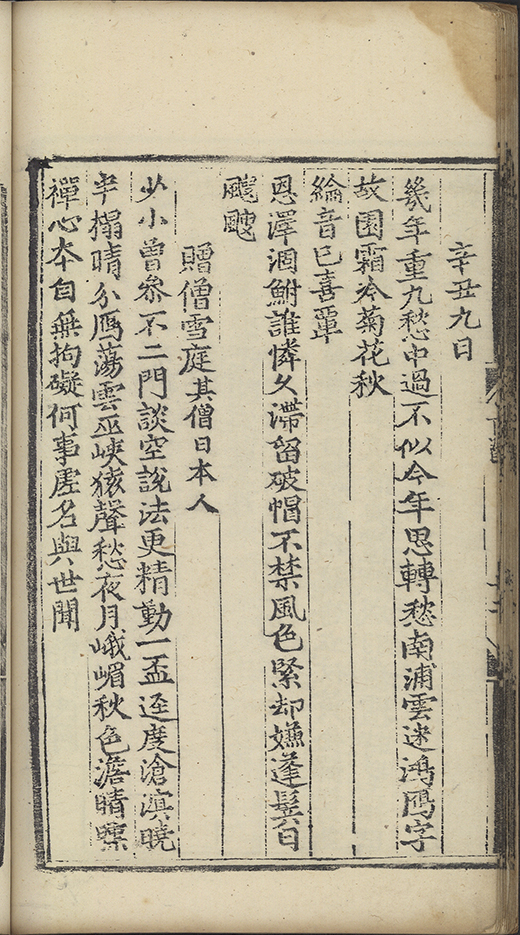 辛丑九日
幾年重九愁中過不似今年思轉愁南浦雲迷鴻鴈字
故園霜冷菊花秋
綸音已喜覃
恩澤涸鮒誰憐久滯留破帽不禁風色緊却嫌蓬鬂白
颼颼
贈僧雪庭其僧日本人
少小曾叅不二門談空說法更精勤一盃逕度滄溟曉
半榻晴分鴈蕩雲巫峽猿聲愁夜月峨嵋秋色澹晴曛
禪心本自無拘礙何事虛名與世聞